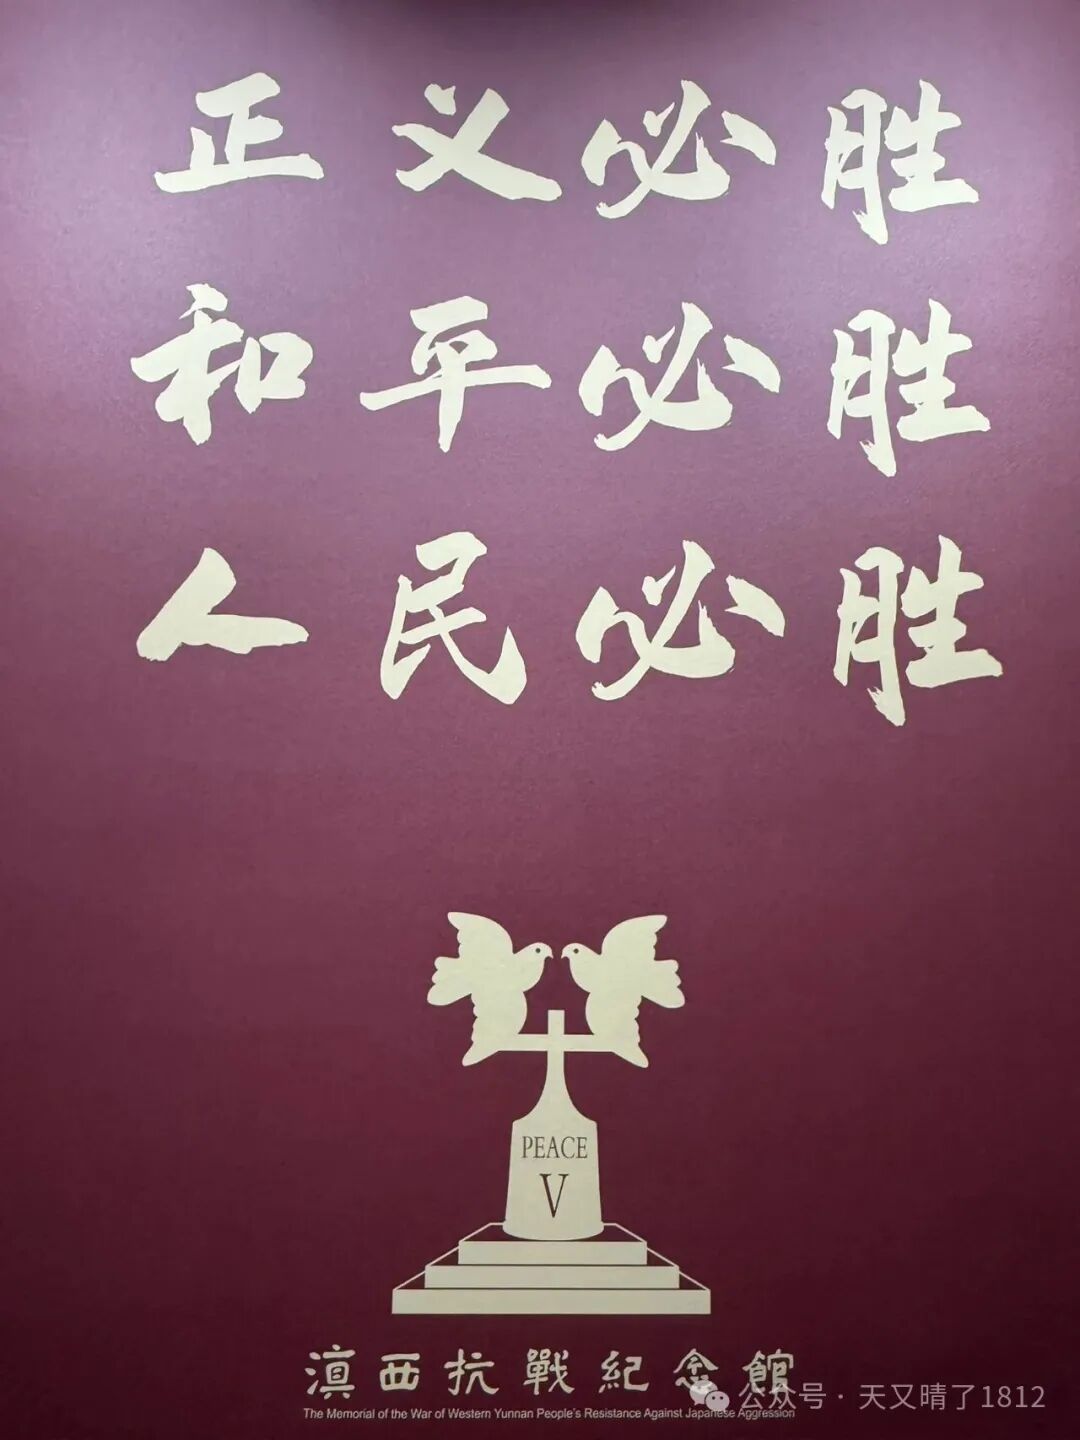 正义必胜
和平必胜
人民必胜
PEACE
V
滇西抗戰紀念館
The Memorial of the War of Western Yunnan People's Resistance Against Japanese Aggression
公众号 · 天又晴了1812